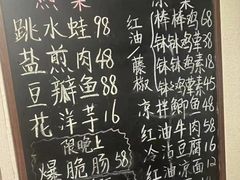 跳水蛙98
盐煎肉48
豆瓣鱼88
花洋芋16
限晚上
爆脆肠58
棒棒鸡68
红油钵钵鸡荤58
藤椒钵钵鸡素45
凉拌鲫鱼48
红油牛肉58
冷沾豆腐16
红油凉面12